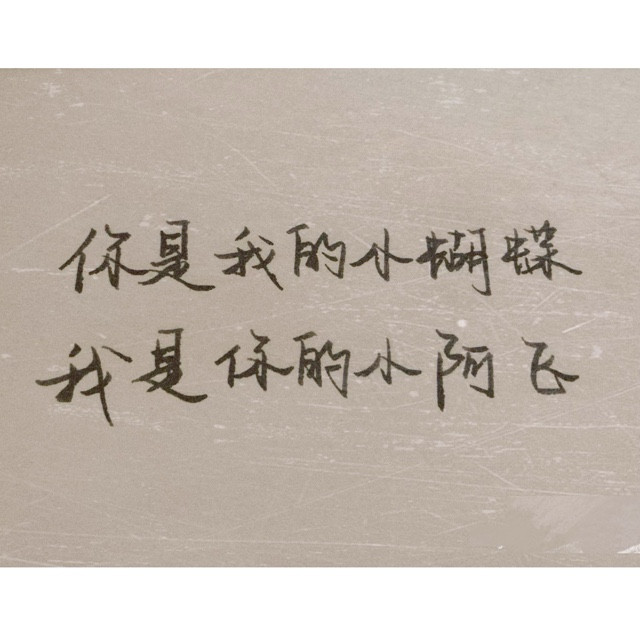 你是我的小蝴蝶
我是你的小阿飞